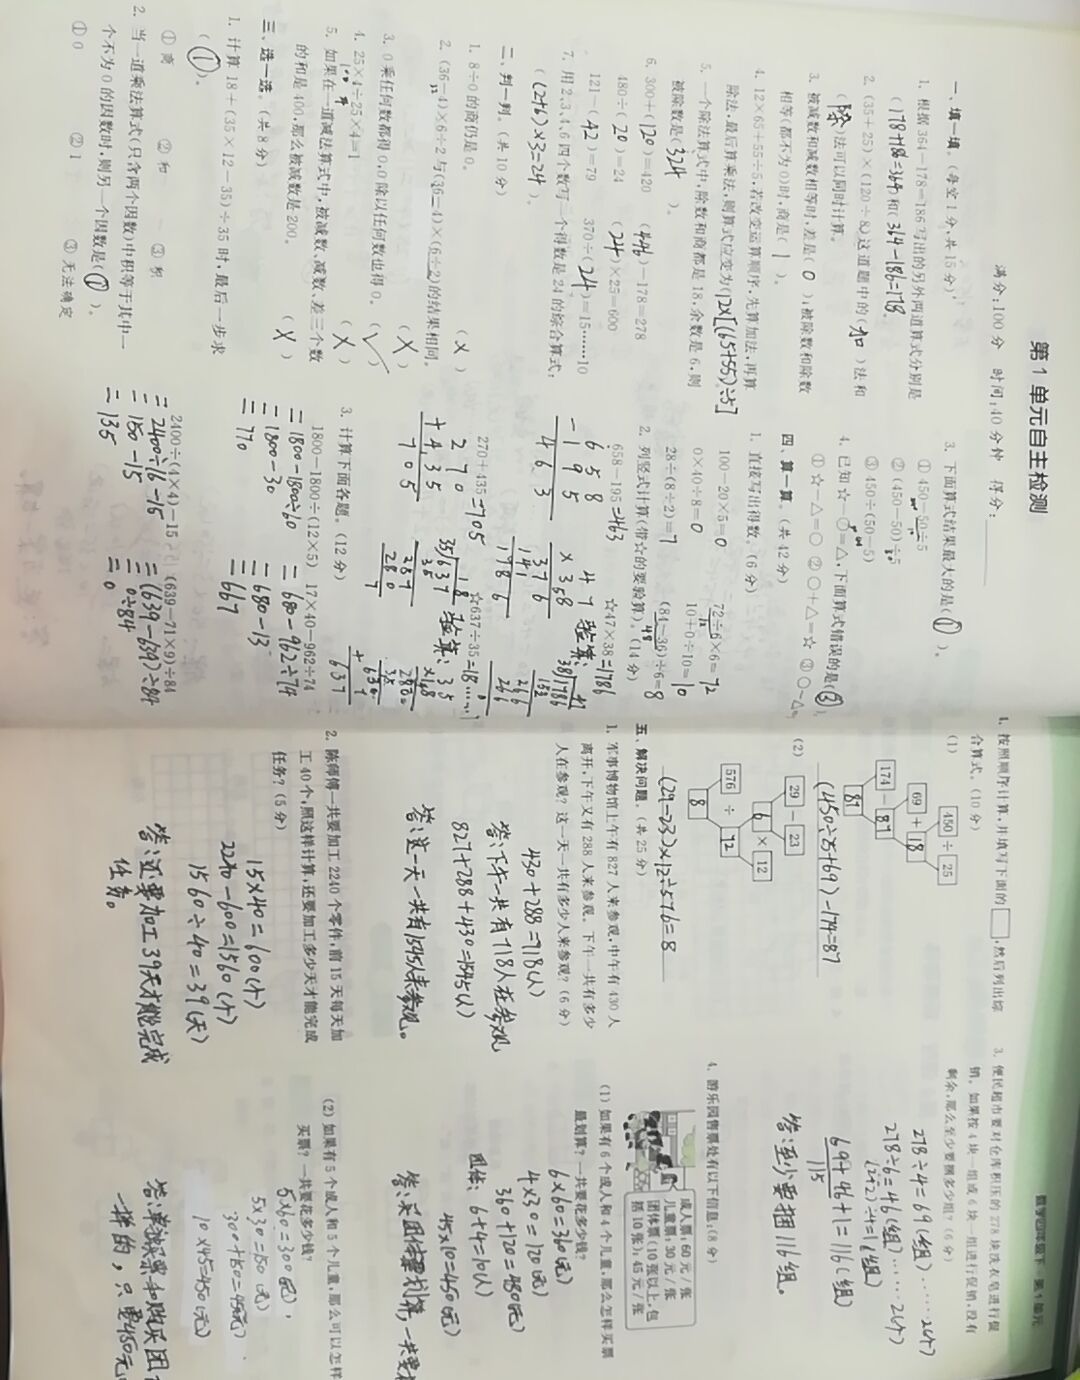 第1单元自主检测
满分:100分 时间:40分钟 得分:
一、填一填。(每空1分,共15分)
1. 根据364-178=186写出的另外两道算式分别是
(178+186=364)和(364-186=178)。
2. (35+25)×(120÷8)这道题中的(加)法和
(除)法可以同时计算。
3. 被减数和减数相等时,差是(0),被除数和除数
相等(都不为0)时,商是(1)。
4. 12×65+55÷5,若改变运算顺序,先算加法,再算
除法,最后算乘法,则算式应变为(12×[(65+55)÷5]
5. 一个除法算式中,除数和商都是18,余数是6,则
被除数是(324)。
6. 300+(120)=420 (446)-178=278
480÷(20)=24 (24)×25=600
121-(42)=79 370÷(24)=15……10
7. 用2、3、4、6四个数写一个得数是24的综合算式:
((2+6)×3=24)。
二、判一判。(共10分)
1. 8÷0的商仍是0。 (×)
2. (36-4)×6÷2与(36-4)×(6÷2)的结果相同。
(×)
3. 0乘任何数都得0,0除以任何数也得0。 (√)
4. 25×4÷25×4=1 (×)
5. 如果在一道减法算式中,被减数、减数、差三个数
的和是400,那么被减数是200。 (×)
三、选一选。(共8分)
1. 计算18+(35×12-35)÷35时,最后一步求
(①)。
①商 ②和 ③积
2. 当一道乘法算式(只含两个因数)中积等于其中一
个不为0的因数时,则另一个因数是(①)。
①0 ②1 ③无法确定
3. 下面算式结果最大的是(①)。
①450-50÷5
②(450-50)÷5
③450÷(50-5)
4. 已知☆-○=△,下面算式错误的是(③)。
①☆-△=○ ②○+△=☆ ③○-△=
四、算一算。(共42分)
1. 直接写出得数。(6分)
100-20×5=0 72÷6×6=72
0×40÷8=0 10+0÷10=10
28÷(8÷2)=7 (84-36)÷6=8
2. 列竖式计算(带☆的要验算)。(14分)
658-195=463 ☆47×38=1786
658
-195
463
47
×38
376
141
1786
验算:
47
38/1786
152
266
266
270+435=705 ☆637÷35=18……7
270
+435
705
18
35/637
35
287
280
7
验算: 35
×18
280
35
630
+ 7
637
3. 计算下面各题。(12分)
1800-1800÷(12×5) 17×40-962÷74
=1800-1800÷60 =680-962÷74
=1800-30 =680-13
=770 =667
2400÷(4×4)-15 (639-71×9)÷84
=2400÷16-15 =(639-639)÷84
=150-15 =0÷84
=135 =0
4. 按照顺序计算,并填写下面的□,然后列出综
合算式。(10分)
(1)
450÷25
69+18
174-87
87
(450÷25+69)-174=87
(2)
29-23
6×12
576÷72
8
(29-23)×12÷576=8
五、解决问题。(共25分)
1. 军事博物馆上午有827人来参观,中午有430人
离开,下午又有288人来参观。下午一共有多少
人在参观?这一天一共有多少人来参观?(6分)
430+288=718(人)
答:下午一共有718人在参观
827+288+430=1545(人)
答:这一天一共有1545人来参观。
2. 陈师傅一共要加工2240个零件,前15天每天加
工40个,照这样计算,还要加工多少天才能完成
任务?(5分)
15×40=600(个)
2240-600=1560(个)
1560÷40=39(天)
答:还要加工39天才能完成
任务。
数学四年级下 第1单元
3. 便民超市要对仓库积压的278块洗衣皂进行促
销。如果按4块一组或6块一组进行促销,没有
剩余,那么至少要捆多少组?(6分)
278÷4=69(组)……2(个)
278÷6=46(组)……2(个)
(2+2)÷4=1(组)
69+46+1=116(组)
115
答:至少要捆116组。
4. 游乐园售票处有以下信息:(8分)
成人票:60元/张
儿童票:30元/张
团体票(10张以上,包
括10张):45元/张
(1) 如果有6个成人和4个儿童,那么怎样买票
最划算?一共要花多少钱?
6×60=360(元)
4×30=120(元)
360+120=480(元)
团体: 6+4=10(人)
45×10=450(元)
(2) 如果有5个成人和5个儿童,那么可以怎样
买票?一共要花多少钱?
5×60=300(元)
5×30=150(元)
300+150=450(元)
10×45=450(元)
一样的,只要450元